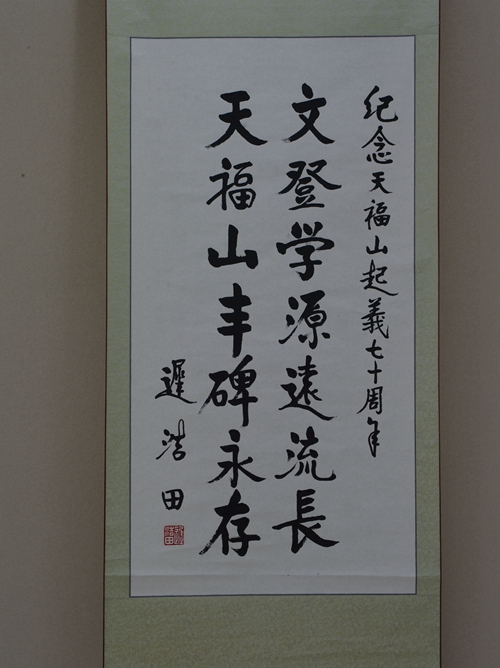 纪念天福山起義七十周年
文登学源遠流長
天福山丰碑永存
遲浩田